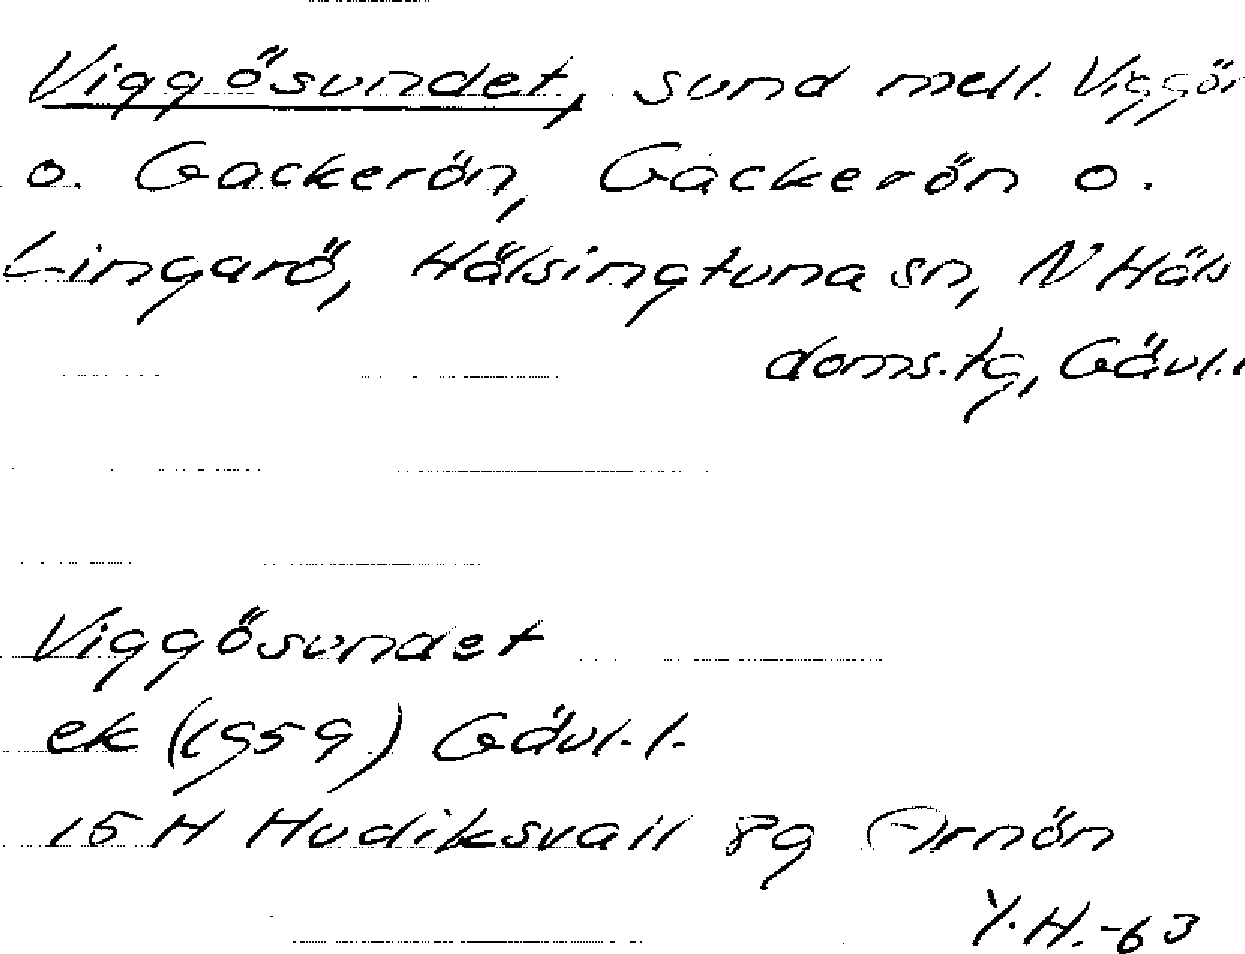 Viggösundet, sund mell. Viggön
o. Gackerön, Gackerön o.
Lingarö, Hälsingtuna sn, N Häls
doms.tg, Gävl.l
Viggösundet
ek (1959) Gävl.l.
15 H Hudiksvall 8g Arnön
Y.H.-63